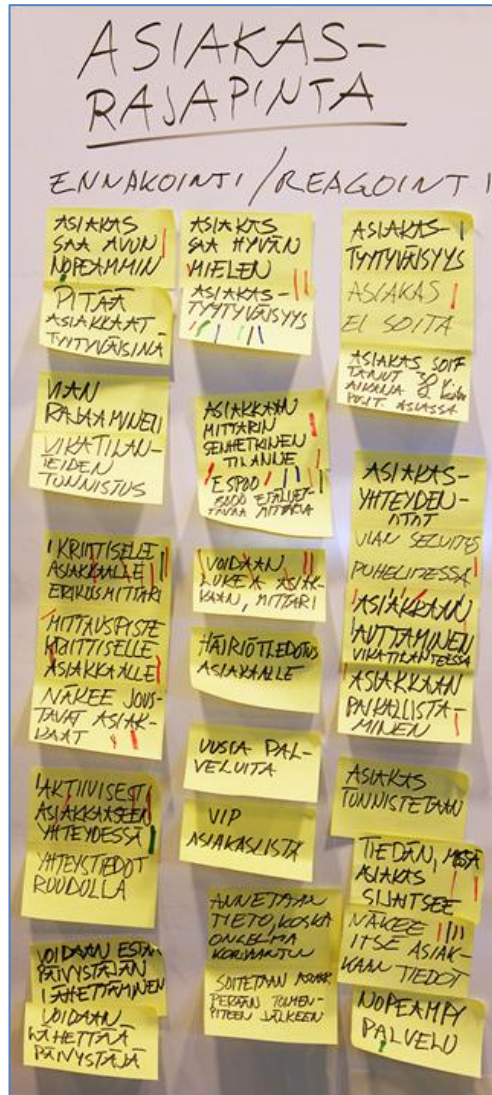 ASIAKAS-
RAJAPINTA
ENNAKOINTI / REAGOINTI
ASIAKAS
SAA AVUN
NOPEAMMIN
PITÄÄ
ASIAKKAAT
TYYTYVÄISINÄ
VIAN
RAJAAMINEN
VIKATILAN-
TEIDEN
TUNNISTUS
KRIITTISELLE
ASIAKKAALLE
ERIKOISMITTARI
MITTAUSPISTE
KRIITTISELLE
ASIAKKAALLE
NÄKEE JOUS-
TAVAT ASIAK-
KAAT
AKTIIVISESTI
ASIAKKAASEEN
YHTEYDESSÄ
YHTEYSTIEDOT
RUUDULLA
VOIDAAN ESTÄÄ
PÄIVYSTÄJÄN
LÄHETTÄMINEN
VOIDAAN
LÄHETTÄÄ
PÄIVYSTÄJÄ
ASIAKAS
SAA HYVÄN
MIELEN
ASIAKAS-
TYYTYVÄISYYS
ASIAKKAAN
MITTARIN
SENHETKINEN
TILANNE
ESPOO
MITTARIA
VOIDAAN
LUKEA ASIAK-
KAAN, MITTARI
HÄIRIÖTIEDOTUS
ASIAKAALLE
UUSIA PAL-
VELUITA
VIP
ASIAKASLISTA
ANNETAAN
TIETO, KOSKA
ONGELMA
KORJAANTUU
SOITETAAN ASIAK.
PERÄÄN TOIMEN-
PITEEN JÄLKEEN
ASIAKAS-
TYYTYVÄISYYS
ASIAKAS
EI SOITA
ASIAKAS SOIT
TANUT
AIKANA
ASIASSA
ASIAKAS-
YHTEYDEN-
OTOT
VIAN SELVITYS
PUHELIMESSA
ASIAKKAAN
AUTTAMINEN
VIKATILANTEESSA
ASIAKKAAN
PAIKALLISTA-
MINEN
ASIAKAS
TUNNISTETAAN
TIEDÄN, MISSÄ
ASIAKAS
SIJAITSEE
NÄKEE
ITSE ASIAK-
KAAN TIEDOT
NOPEAMPI
PALVELU